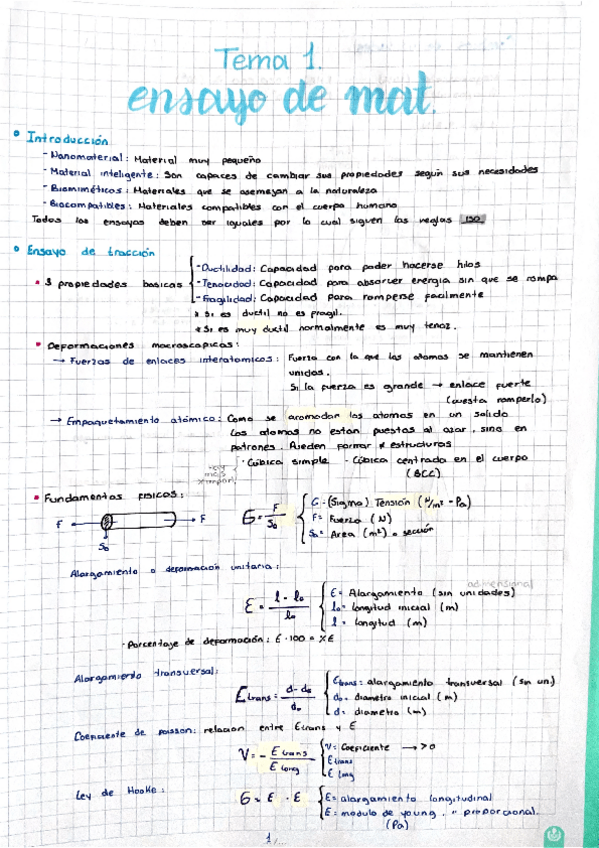 Tema 1.
ensayo de mat.
Introducción
- Nanomaterial: Material muy pequeño
- Material inteligente: Son capaces de cambiar sus propiedades según sus necesidades
- Biomiméticos: Materiales que se asemejan a la naturaleza
- Biocompatibles: Materiales compatibles con el cuerpo humano
Todos los ensayos deben ser iguales por lo cual siguen las reglas ISO
Ensayo de tracción
- Ductilidad: Capacidad para poder hacerse hilos
• 3 propiedades basicas - Tenacidad: Capacidad para absorver energia sin que se rompa
- Fragilidad: Capacidad para romperse facilmente
* Si es ductil no es fragil.
* Si es muy ductil normalmente es muy tenaz.
• Deformaciones macroscopicas:
→ Fuerzas de enlaces interatomicos: Fuerza con la que los atomos se mantienen
unidos.
Si la fuerza es grande → enlace fuerte
(cuesta romperlo)
→ Empaquetamiento atómico: Como se acomodar los atomos en un solido
Los atomos no estan puestas al azar, sino en
patrones. Pueden formar * estructuras
· Cúbica simple - Cúbica centrada en el cuerpo
(BCC)
• Fundamentos fisicos:
F F
S₀
σ = F / S₀
σ = (Sigma) Tensión (N/m² = Pa)
F = Fuerza (N)
S₀ = Area (m²) o sección
Alargamiento o deformación unitaria:
adimensional
ε = l - l₀ / l₀
ε = Alargamiento (sin unidades)
l₀ = longitud inicial (m)
l = longitud (m)
· Porcentaje de deformación: ε · 100 = %ε
Alargamiento transversal:
ε trans = d - d₀ / d₀
εtrans: alargamiento transversal (sin un)
d₀ = diametro inicial (m)
d = diametro (m)
Coeficiente de poisson: relacion entre εtrans y ε
V = - ε trans / ε long
V = Coeficiente → > 0
ε trans
ε long
Ley de Hooke:
σ = E · ε
ε = alargamiento longitudinal
E = modulo de young. proporcional.
(Pa)
1